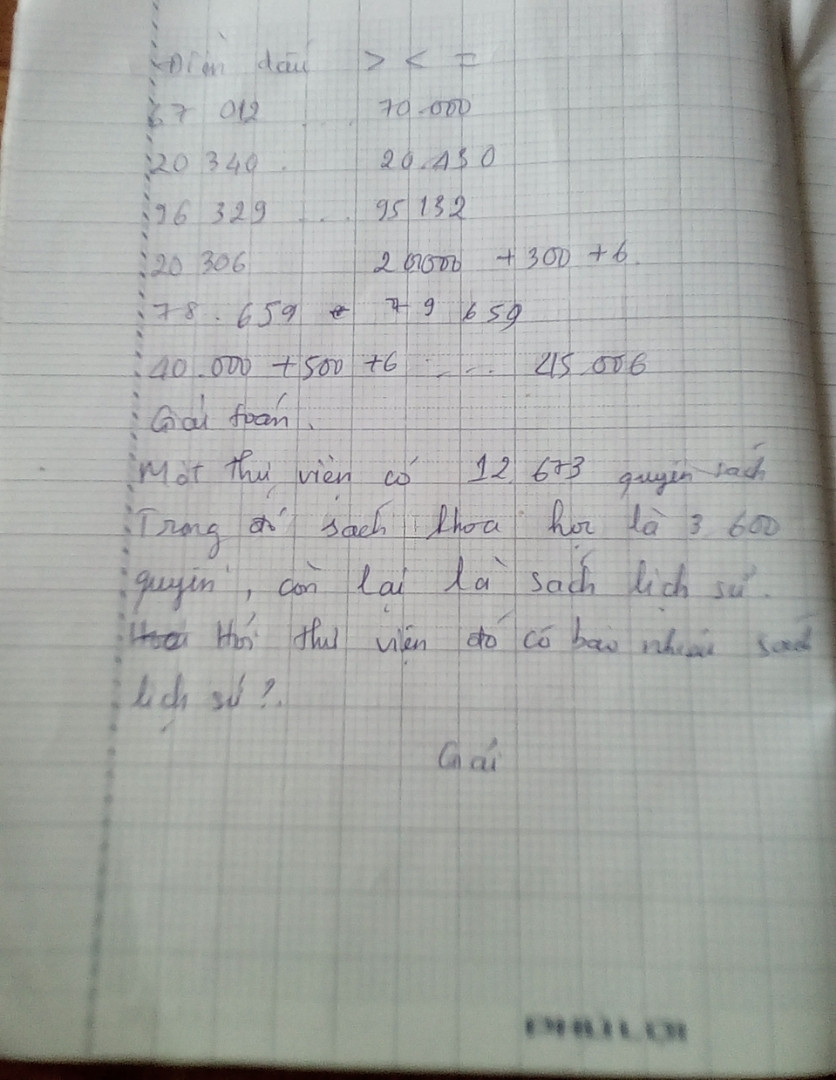 Điền dấu > < =
67 012 ... 70.000
20 340 . 20.430
96 329 ... 95 132
20 306 20000 + 300 + 6
78.659 79 659
40.000 + 500 + 6 ... 45.006
Giải toán.
Một thư viện có 12 673 quyển sách
Trong đó sách khoa học là 3 600
quyển, còn lại là sách lịch sử.
Hỏi thư viện đó có bao nhiêu sách
lịch sử?.
Giải